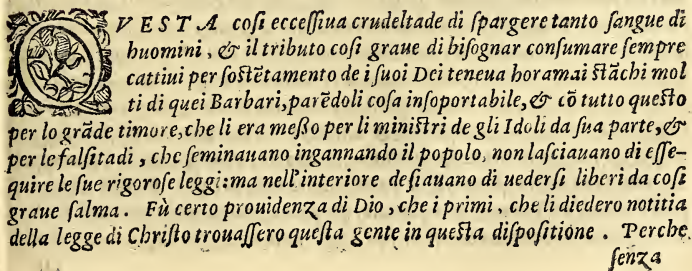 QVESTA cosi eccessiua crudeltade di spargere tanto sangue di
huomini, & il tributo cosi graue di bisognar consumare sempre
cattiui per sostẽtamento de i suoi Dei teneua horamai stãchi mol
ti di quei Barbari, parẽdoli cosa insoportabile, & cõ tutto questo
per lo grãde timore, che li era messo per li ministri de gli Idoli da sua parte, &
per le falsitadi, che seminauano ingannando il popolo, non lasciauano di esse-
quire le sue rigorose leggi: ma nell'interiore desiauano di uedersi liberi da cosi
graue salma. Fù certo prouidenza di Dio, che i primi, che li diedero notitia
della legge di Christo trouassero questa gente in questa dispositione. Perche
senza